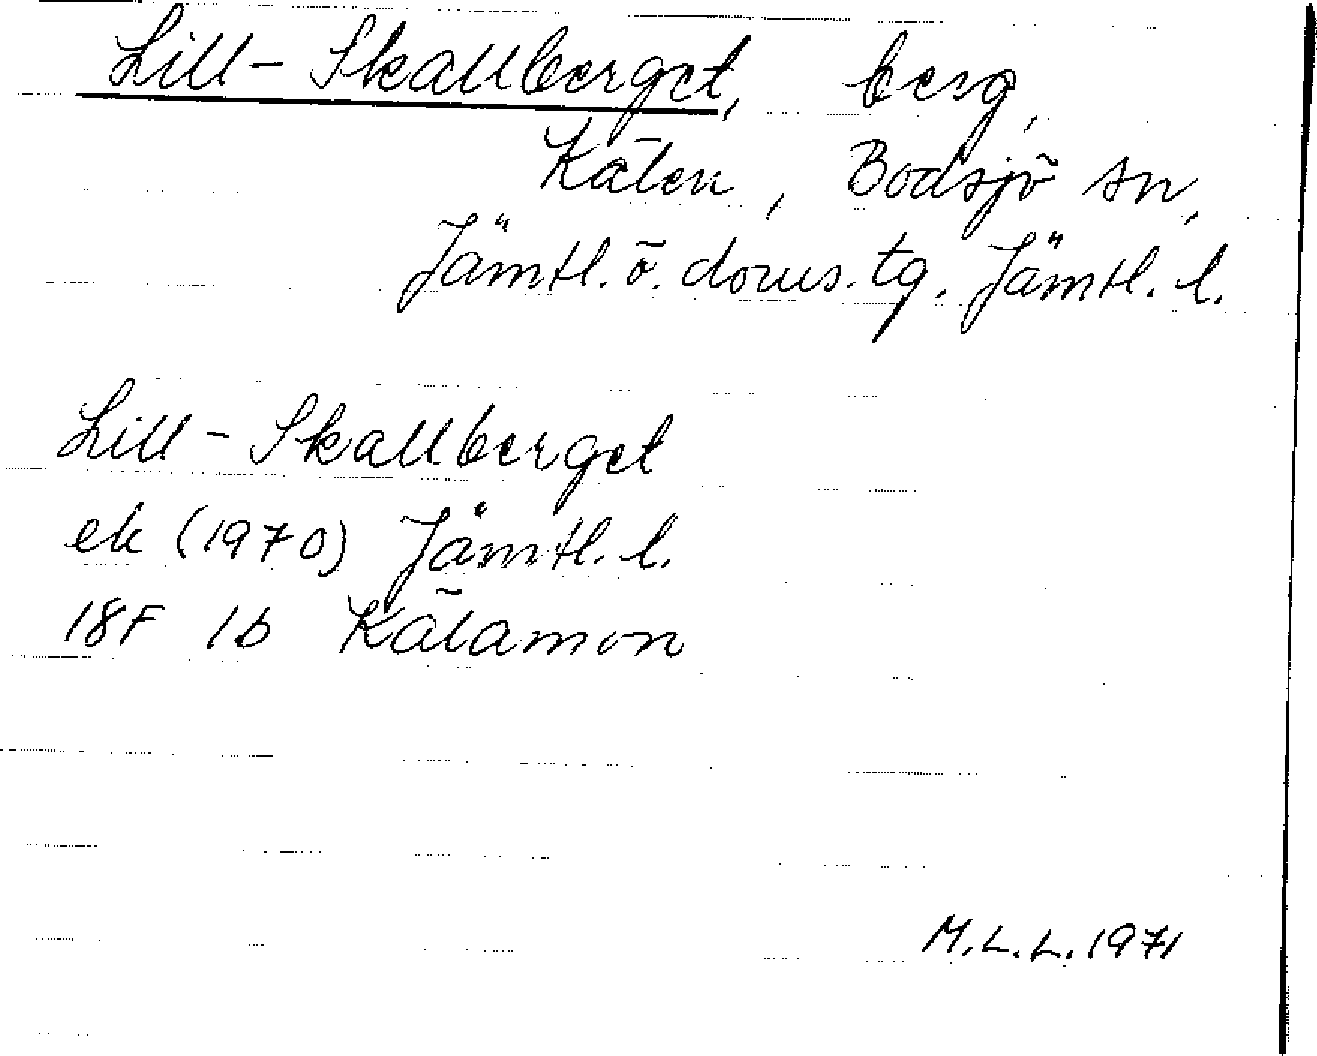 Lill-Skallberget, berg,
Kälen, Bodsjö sn,
Jämtl. ö. doms. tg. Jämtl. l.
Lill-Skallberget
ek (1970) Jämtl. l.
18F 1b Kälamon
M.L.L. 1971